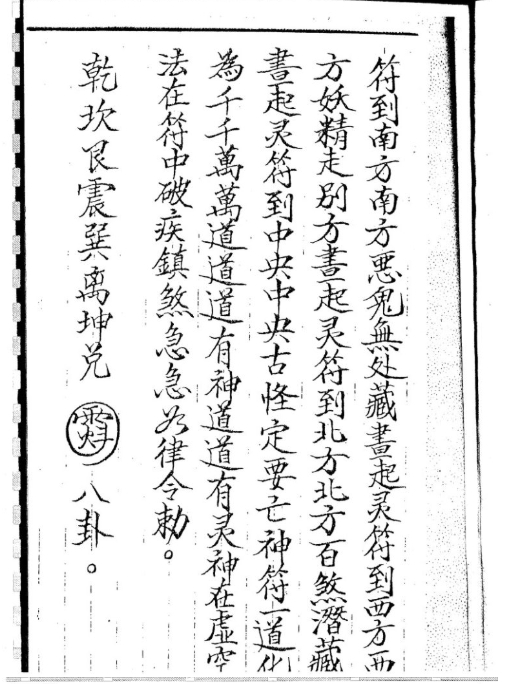 符到南方南方悪鬼無处藏書起灵符到西方西
方妖精走别方書起灵符到北方北方百煞潛藏
書起灵符到中央中央古怪定要亡神符一道化
為千千萬萬道道道有神道道有灵神在虛空
法在符中破疾鎮煞急急如律令勅。
乾坎艮震巽离坤兑 八卦。